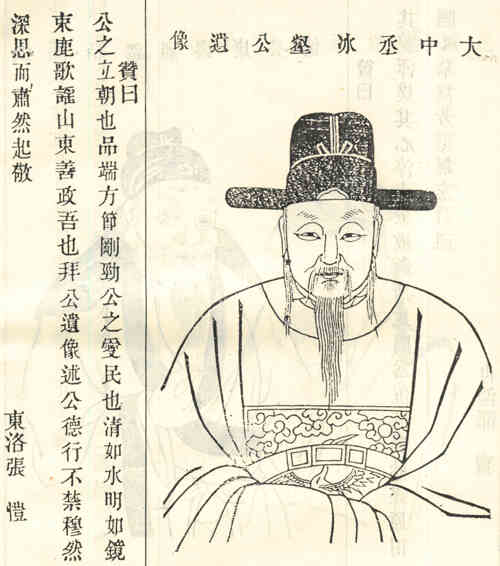 大中丞冰壑公遺像
贊曰
公之立朝也品端方節剛勁公之愛民也清如水明如鏡
束鹿歌謠山東善政吾也拜公遺像述公德行不禁穆然
深思而肅然起敬
東洛張愷